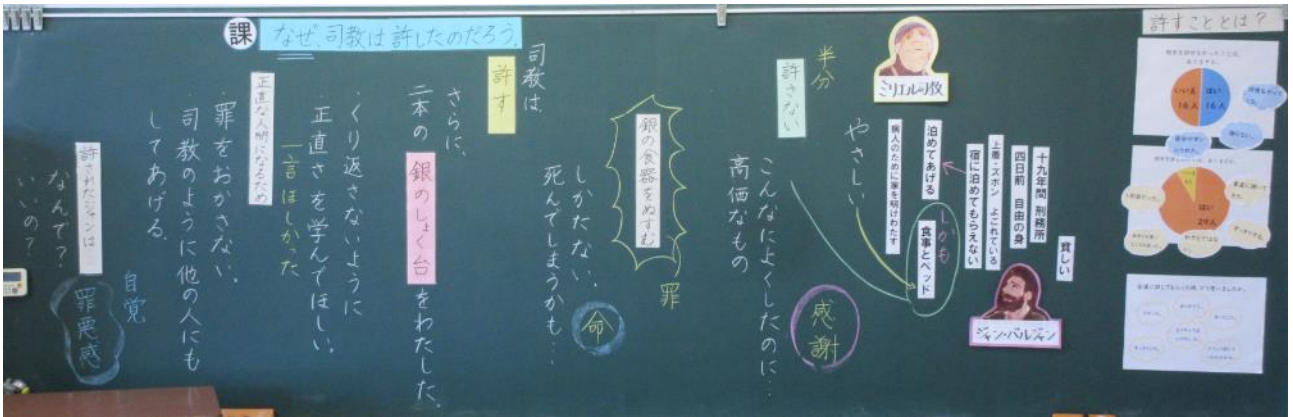 許すこととは？
いいえ
16人
はい
16人
はい
29人
ミリエル司教
ジャン・バルジャン
貧しい
十九年間 刑務所
四日前 自由の身
上着・ズボン よごれている
宿に泊めてもらえない
しかも
食事とベッド
泊めてあげる
病人のために家を明けわたす
やさしい
感謝
半分
許さない
こんなによくしたのに…
高価なもの
罪
銀の食器をぬすむ
しかたない、
死んでしまうかも…
命
司教は、
許す
さらに、
二本の銀のしょく台をわたした。
課
なぜ、司教は許したのだろう。
・くり返さないように
正直さを学んでほしい。
一言ほしかった
正直な人間になるため
・罪をおかさない。
司教のように他の人にも
してあげる。
許されたジャンは
なんで？
いいの？
自覚
罪悪感